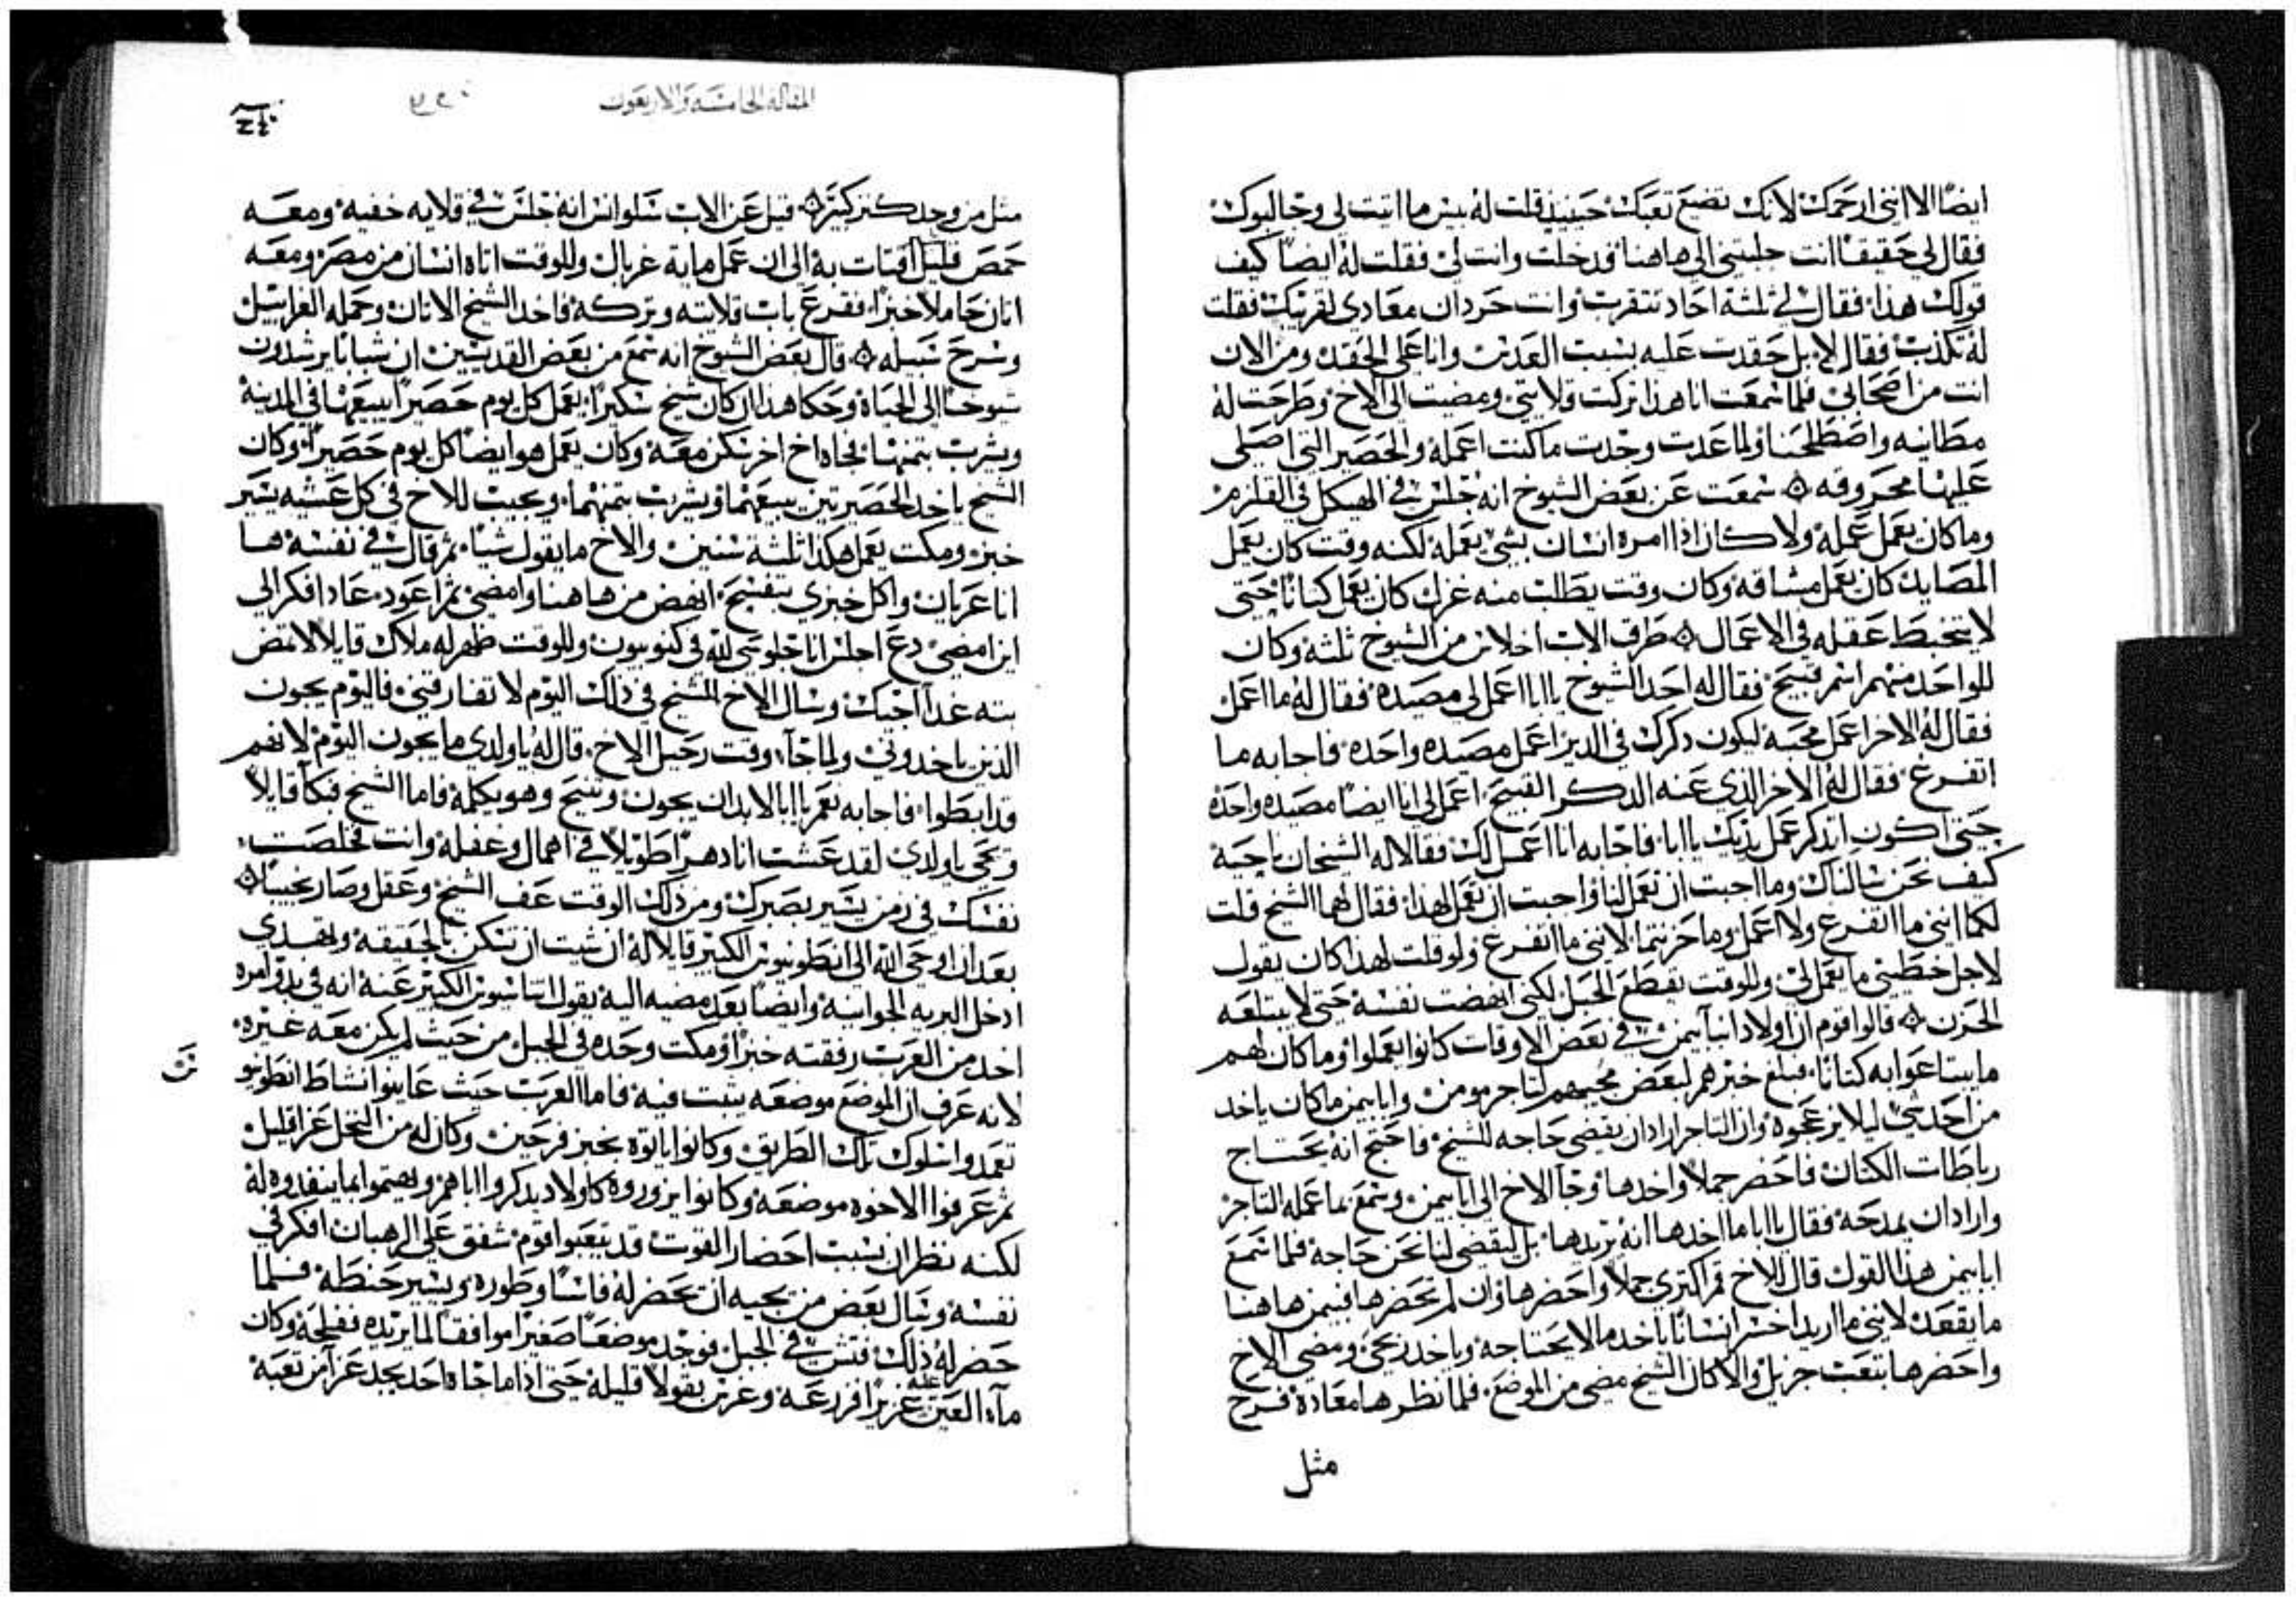 ايضًا الا انني ارحمك لانك تضيع تعبك حينيذ قلت له بيس ما اتيت لي وخاليوك
فقال لي حقيقًا انت جلبتني الى هاهنا قد دخلت وانت لي فقلت له ايضًا كيف
قولك هذا فقال لي ثلثة احاد تتقرب وانت حردان معادي لقريبك فقلت
له تكذب فقال لا بل حقدت عليه بسبب العدس وانا على الحقد ومن الان
انت من اصحابي فلما سمعت انا هذا تركت قلايتي ومضيت الى الاخ وطرحت له
مطانيه واصطلحنا ولما عدت وجدت ما كنت اعمله والحصير التي اصلي
عليها محروقه سمعت عن بعض الشيوخ انه جلس في الهيكل في القلزم
وما كان يعمل عمله ولا كان اذا امره انسان بشي يعمله لكنه وقت كان يعمل
المصايد كان يعمل مشاقه وكان وقت يطلب منه غزل كان يعمل كتانا حتى
لا يتخبط عقله في الاعمال طرق الاب اخلاس من الشيوخ ثلثه وكان
للواحد منهم اسم قبيح فقال له احد الشيوخ يا ابا اعمل لي مصيده فقال له ما اعمل
فقال له الاخر اعمل محبه ليكون ذكرك في الدير اعمل مصيده واحده فاجابه ما
اتفرغ فقال له الاخر الذي عنه الذكر القبيح اعمل لي انا ايضًا مصيده واحده
حتى اكون اتذكر عمل يديك يا ابا فاجابه انا اعمل لك فقالا له الشيخان ناحيه
كيف نحن سالناك وما احببت ان تعمل لنا واحببت ان تعمل لهذا فقال لهما الشيخ قلت
لكما انني ما اتفرغ ولا اعمل وما حزنتما لانني ما اتفرغ ولو قلت لهذا كان يقول
لاجل خطيتي ما يعمل لي وللوقت نقطع الحبل لكني انهضت نفسه حتى لا يبتلعه
الحزن قالوا قوم ان اولاد انبا بيمن في بعض الاوقات كانوا يعملوا وما كان لهم
ما يبتاعوا به كتانا فبلغ خبرهم لبعض محبيهم لتاجر مومن وابا بيمن ما كان ياخد
من احد شي ليلا يزعجوه وان التاجر اراد ان يقضي حاجه للشيخ فاحتج انه يحتاج
رباطات الكتان فاحضر جملا واخدها وجا الاخ الى ابا بيمن وسمع بما عمله التاجر
واراد ان يمدحه فقال يا ابا ما اخدها انه يريدها بل ليقضي لنا نحن حاجه فلما سمع
ابا بيمن هذا القول قال للاخ قم اكتري جملا واحضرها وان لم تحضرها فبيمن هاهنا
ما يقعد لانني ما اريد اخسر انسانًا ياخد ما لا يحتاجه وياخد ربحي ومضى الاخ
واحضرها بتعب جزيل والا كان الشيخ مضى من الموضع فلما نظرها معاده فرح
مثل
المقاله الخامسه والاربعون
مثل من وجد كنز كبير قيل عن الاب سلوانس انه جلس في قلايه خفيه ومعه
حمص قليل اقتات به الى ان عمل مايه غربال وللوقت اتاه انسان من مصر ومعه
اتان حاملا خبزًا فقرع باب قلايته وتركه فاخد الشيخ الاتان وحمله الغرابيل
وسرح سبيله قال بعض الشيوخ انه سمع من بعض القديسين ان شبانا يرشدون
شيوخًا الى الحياة وحكا هذا ان كان شيخ سكيرًا يعمل كل يوم حصيرًا يبيعها في المدينه
ويشرب بتمنها فجاه اخ اخر سكن معه وكان يعمل هو ايضًا كل يوم حصيرًا وكان
الشيخ ياخد الحصيرتين يبيعهما ويشرب بتمنهما ويجيب للاخ في كل عشيه يسير
خبز ومكث يعمل هكذا ثلثة سنين والاخ ما يقول شيا ثم قال في نفسه ها
انا عريان واكل خبزي بتفسيح انهض من هاهنا وامضي ثم اعود عاد افكر الى
اين امضي دع اجلس انا جلوسي لله في كنوبيون وللوقت ظهر له ملاك قايلا لا تمض
بته غدًا اجيك وسال الاخ للشيخ في ذلك اليوم لا تفارقني فاليوم يجون
الذين ياخدوني ولما جاء وقت رحيل الاخ قال له يا ولدي ما يجون اليوم لانهم
قد ابطوا فاجابه نعم يا ابا لابد ان يجون وتنيح وهو يكلمه فاما الشيخ فبكا قايلا
ويحي يا ولدي لقد عشت انا دهرًا طويلا في اهمال وغفله وانت فخلصت
نفسك في زمن يسير بصبرك ومن ذلك الوقت عف الشيخ وعقل وصار نجيبًا
بعد ان اوحى الله الى انطونيوس الكبير قايلا له ان شيت ان تسكن بالحقيقه وتهدي
ادخل البريه الجوانيه وايضًا بعد مضيه اليه يقول اتناسيوس الكبير عنه انه في بدو امره
اخد من العرب رفقته خبزًا ومكث وحده في الجبل من حيث لم يكن معه غيره
لانه عرف ان الموضع موضعه يثبت فيه فاما العرب حيث عاينوا نشاط انطونيو
تعمدوا سلوك تلك الطريق وكانوا ياتوه بخبز فرحين وكان له من النخل عزا قليل
ثم عرفوا الاخوه موضعه وكانوا يزوروه كاولاد يدكروا اباهم ويهتموا بما ينفدوه له
لكنه نظر ان بسبب احضار القوت قد يتعبوا قوم شفق على الرهبان افكر في
نفسه وسال بعض من يجيه ان يحضر له فاسًا وطوره ويسير حنطه فلما
حضر له ذلك فتش في الجبل فوجد موضعًا صغيرًا موافقًا لما يريده نفلحه وكان
مآء العين عليه غزيرًا فزرعه وغرس بقولا قليله حتى اذا ما جاه احد يجد عزآ من تعبه